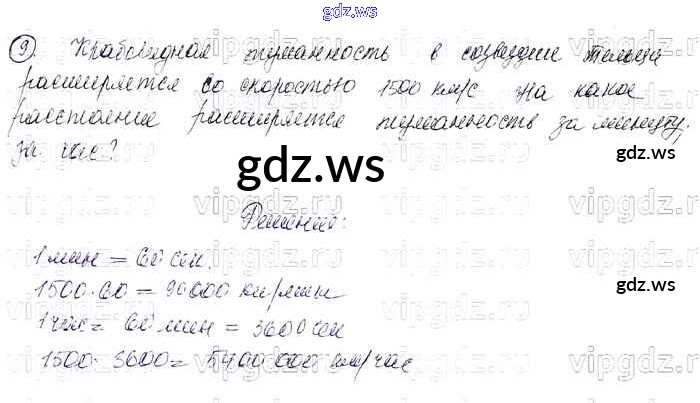 gdz.ws
9. Крабовидная туманность в созвездии Тельца
расширяется со скоростью 1500 км/с На какое
расстояние расширяется туманность за минуту;
за час?
gdz.ws
gdz.ws
Решение:
1 мин = 60 сек.
1500·60 = 90000 км/мин
gdz.ws
1 час = 60 мин = 3600 сек
1500·3600 = 5400 000 км/час
gdz.ws
vipgdz.ws